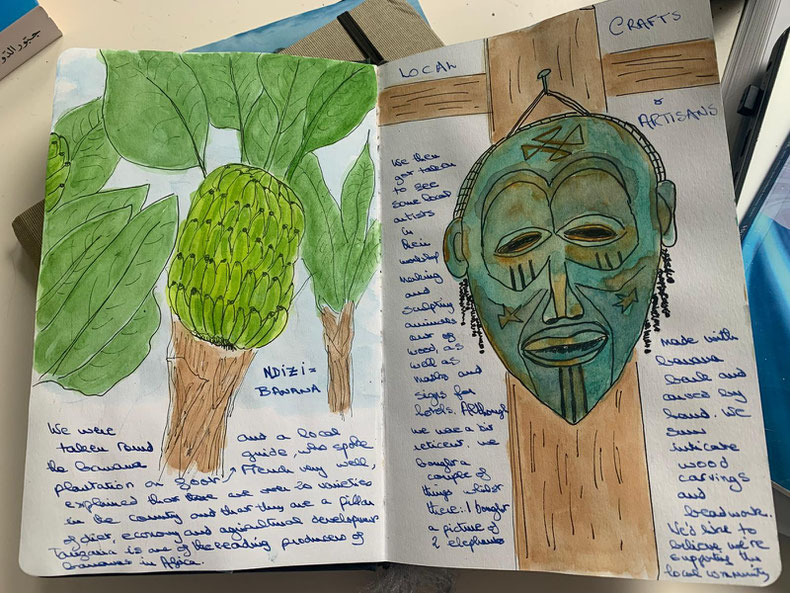 NDIZI =
BANANA
We were
taken round
the banana
plantation on foot,
and a local
guide, who spoke
French very well,
explained that there are over 20 varieties
in the country and that they are a pillar
of diet, economy and agricultural development
Tanzania is one of the leading producers of
bananas in Africa.
LOCAL
CRAFTS
&
ARTISANS
We then
got taken
to see
some local
artists
in
their
workshop
making
and
sculpting
animals
out of
wood, as
well as
masks and
signs for
hotels. Although
we were a bit
reticent, we
bought a
couple of
things whilst
there: I bought
a picture of
2 elephants
made with
banana
bark and
carved by
hand. We
saw
intricate
wood
carvings
and
beadwork.
We'd like to
believe we're
supporting the
local community